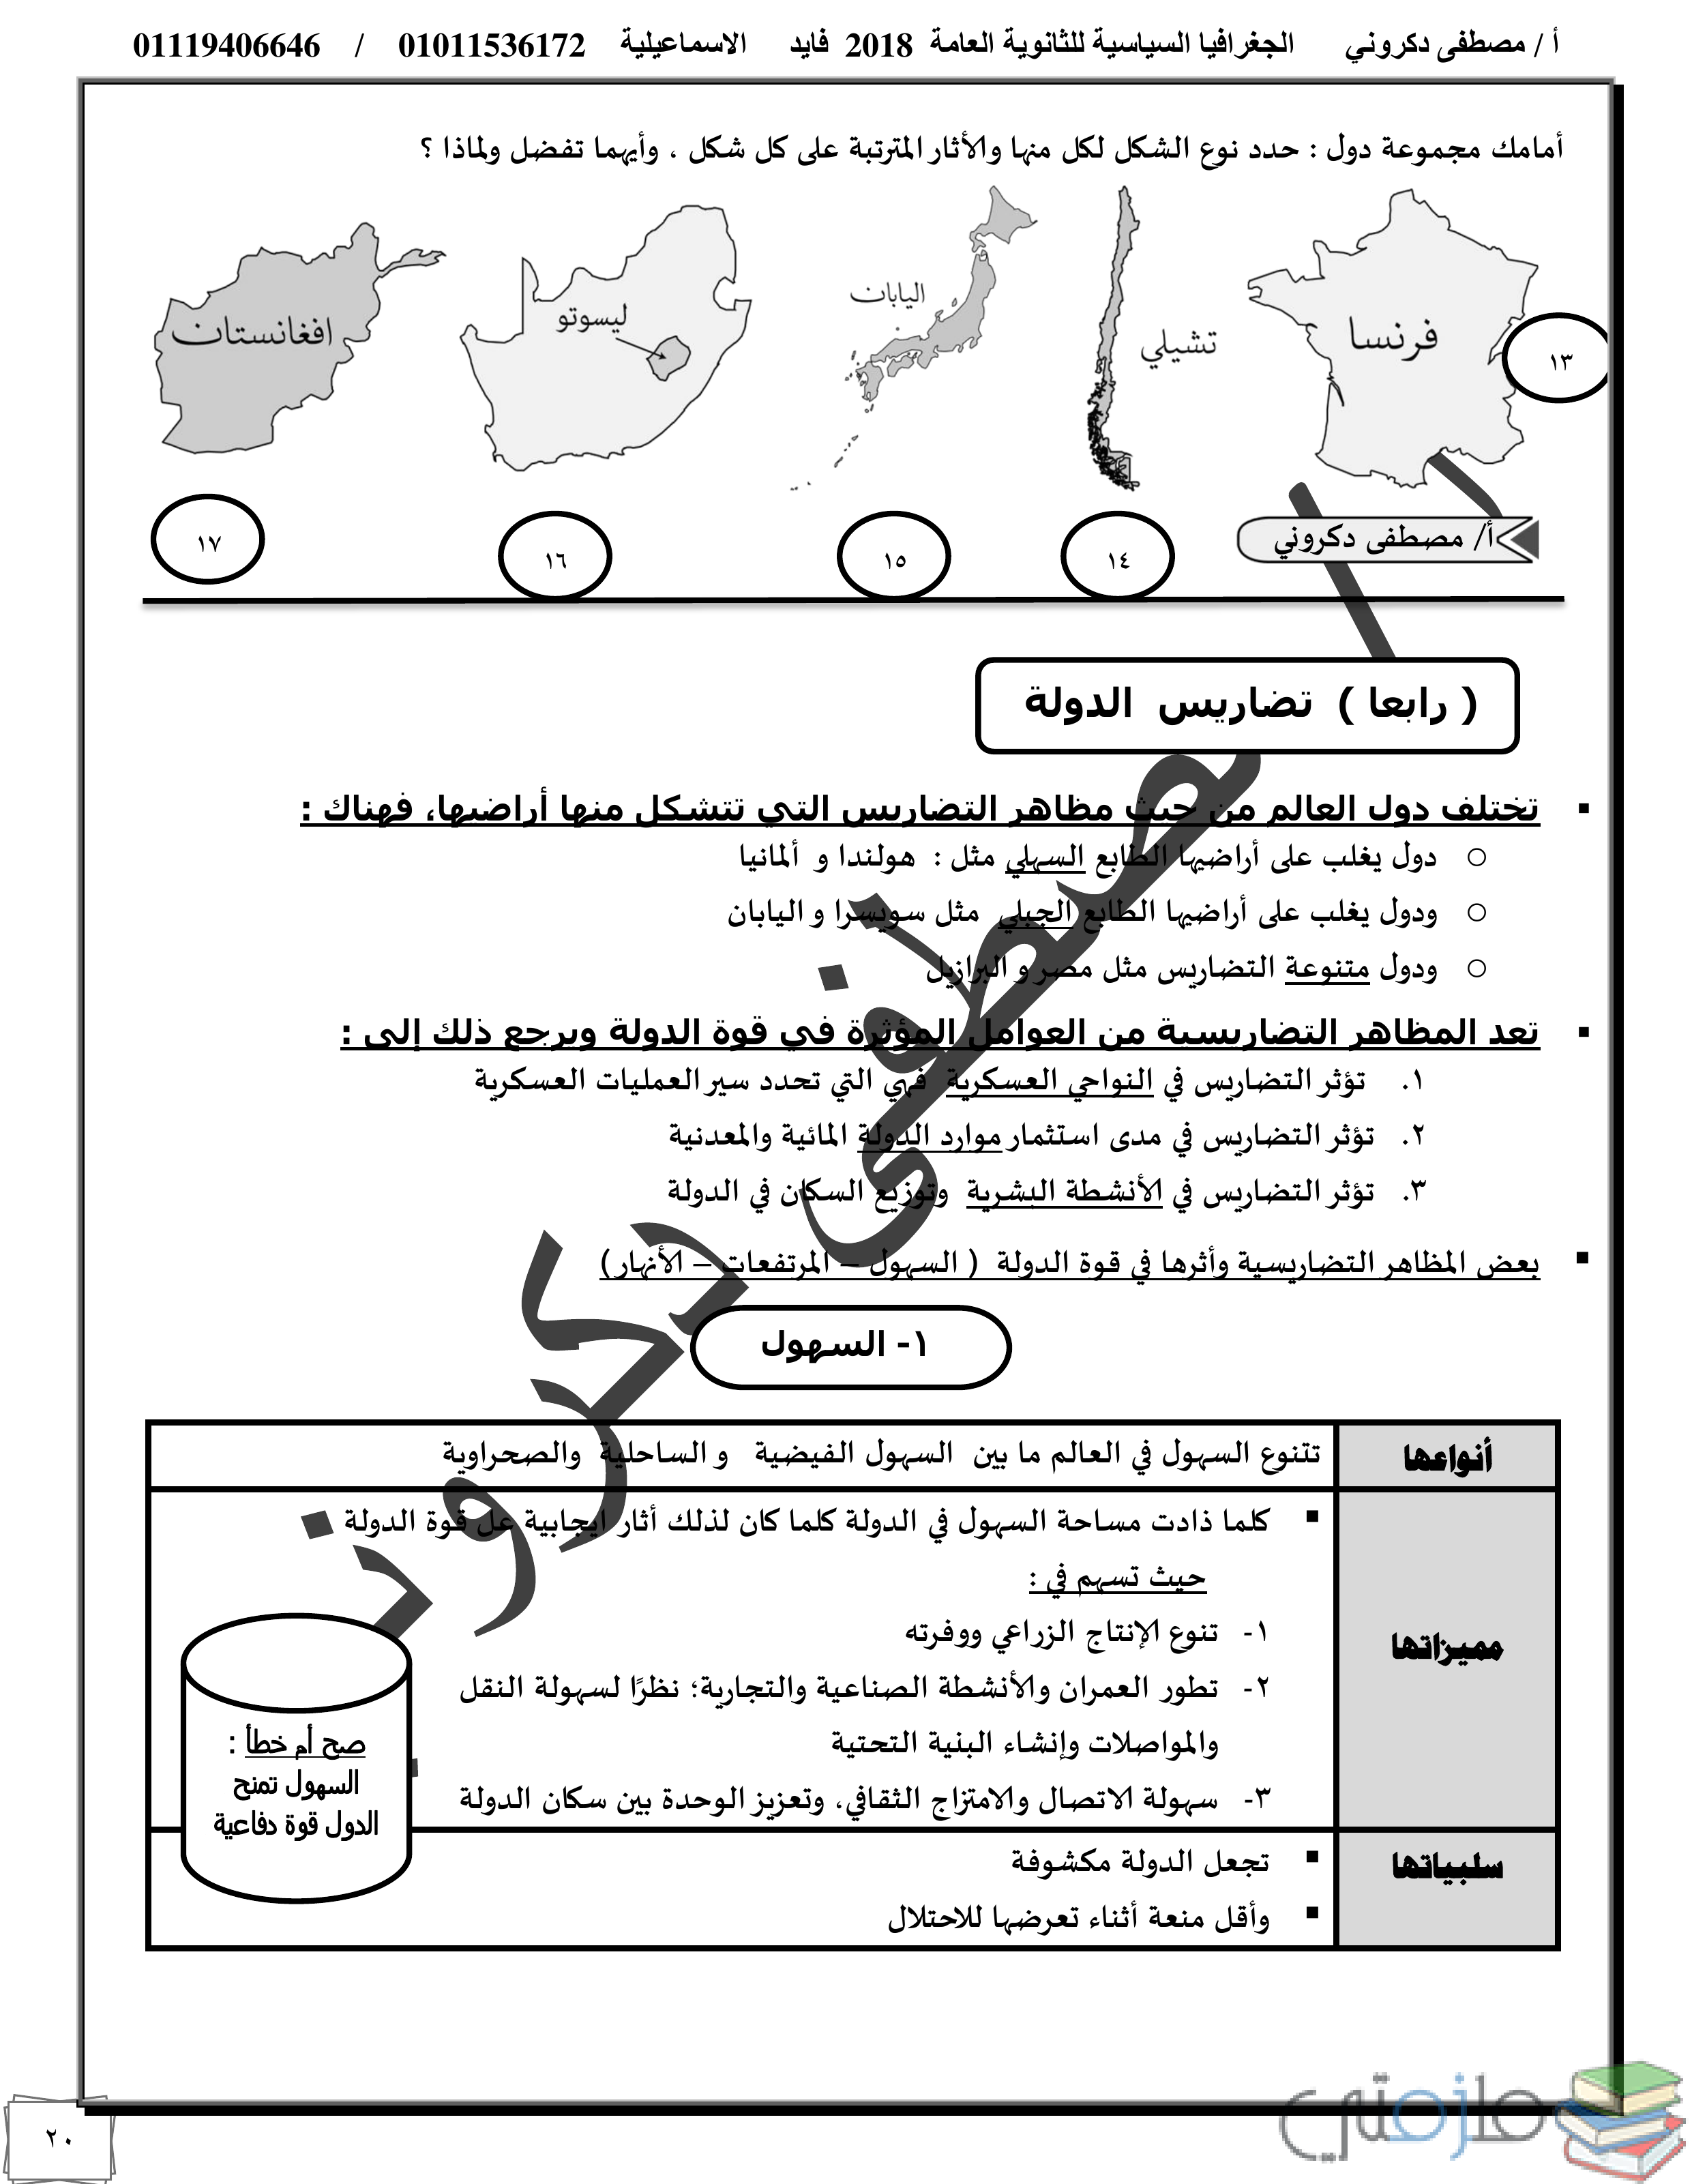 أ / مصطفى دكروني الجغرافيا السياسية للثانوية العامة 2018 فايد الاسماعيلية 01011536172 / 01119406646
أمامك مجموعة دول : حدد نوع الشكل لكل منها والأثار المترتبة على كل شكل ، وأيهما تفضل ولماذا ؟
فرنسا
تشيلي
اليابان
ليسوتو
افغانستان
١٣
١٤
١٥
١٦
١٧
أ/ مصطفى دكروني
( رابعا ) تضاريس الدولة
▪ تختلف دول العالم من حيث مظاهر التضاريس التي تتشكل منها أراضيها، فهناك :
○ دول يغلب على أراضيها الطابع السهلي مثل : هولندا و ألمانيا
○ ودول يغلب على أراضيها الطابع الجبلي مثل سويسرا و اليابان
○ ودول متنوعة التضاريس مثل مصر و البرازيل
▪ تعد المظاهر التضاريسية من العوامل المؤثرة في قوة الدولة ويرجع ذلك إلى :
١. تؤثر التضاريس في النواحي العسكرية فهي التي تحدد سير العمليات العسكرية
٢. تؤثر التضاريس في مدى استثمار موارد الدولة المائية والمعدنية
٣. تؤثر التضاريس في الأنشطة البشرية وتوزيع السكان في الدولة
▪ بعض المظاهر التضاريسية وأثرها في قوة الدولة ( السهول – المرتفعات – الأنهار)
١- السهول
أنواعها
تتنوع السهول في العالم ما بين السهول الفيضية و الساحلية والصحراوية
مميزاتها
▪ كلما ذادت مساحة السهول في الدولة كلما كان لذلك أثار ايجابية عل قوة الدولة
حيث تسهم في :
١- تنوع الإنتاج الزراعي ووفرته
٢- تطور العمران والأنشطة الصناعية والتجارية؛ نظرًا لسهولة النقل
والمواصلات وإنشاء البنية التحتية
٣- سهولة الاتصال والامتزاج الثقافي، وتعزيز الوحدة بين سكان الدولة
صح أم خطأ :
السهول تمنح
الدول قوة دفاعية
سلبياتها
▪ تجعل الدولة مكشوفة
▪ وأقل منعة أثناء تعرضها للاحتلال
أ / مصطفى دكروني
ملازمتي
٢٠